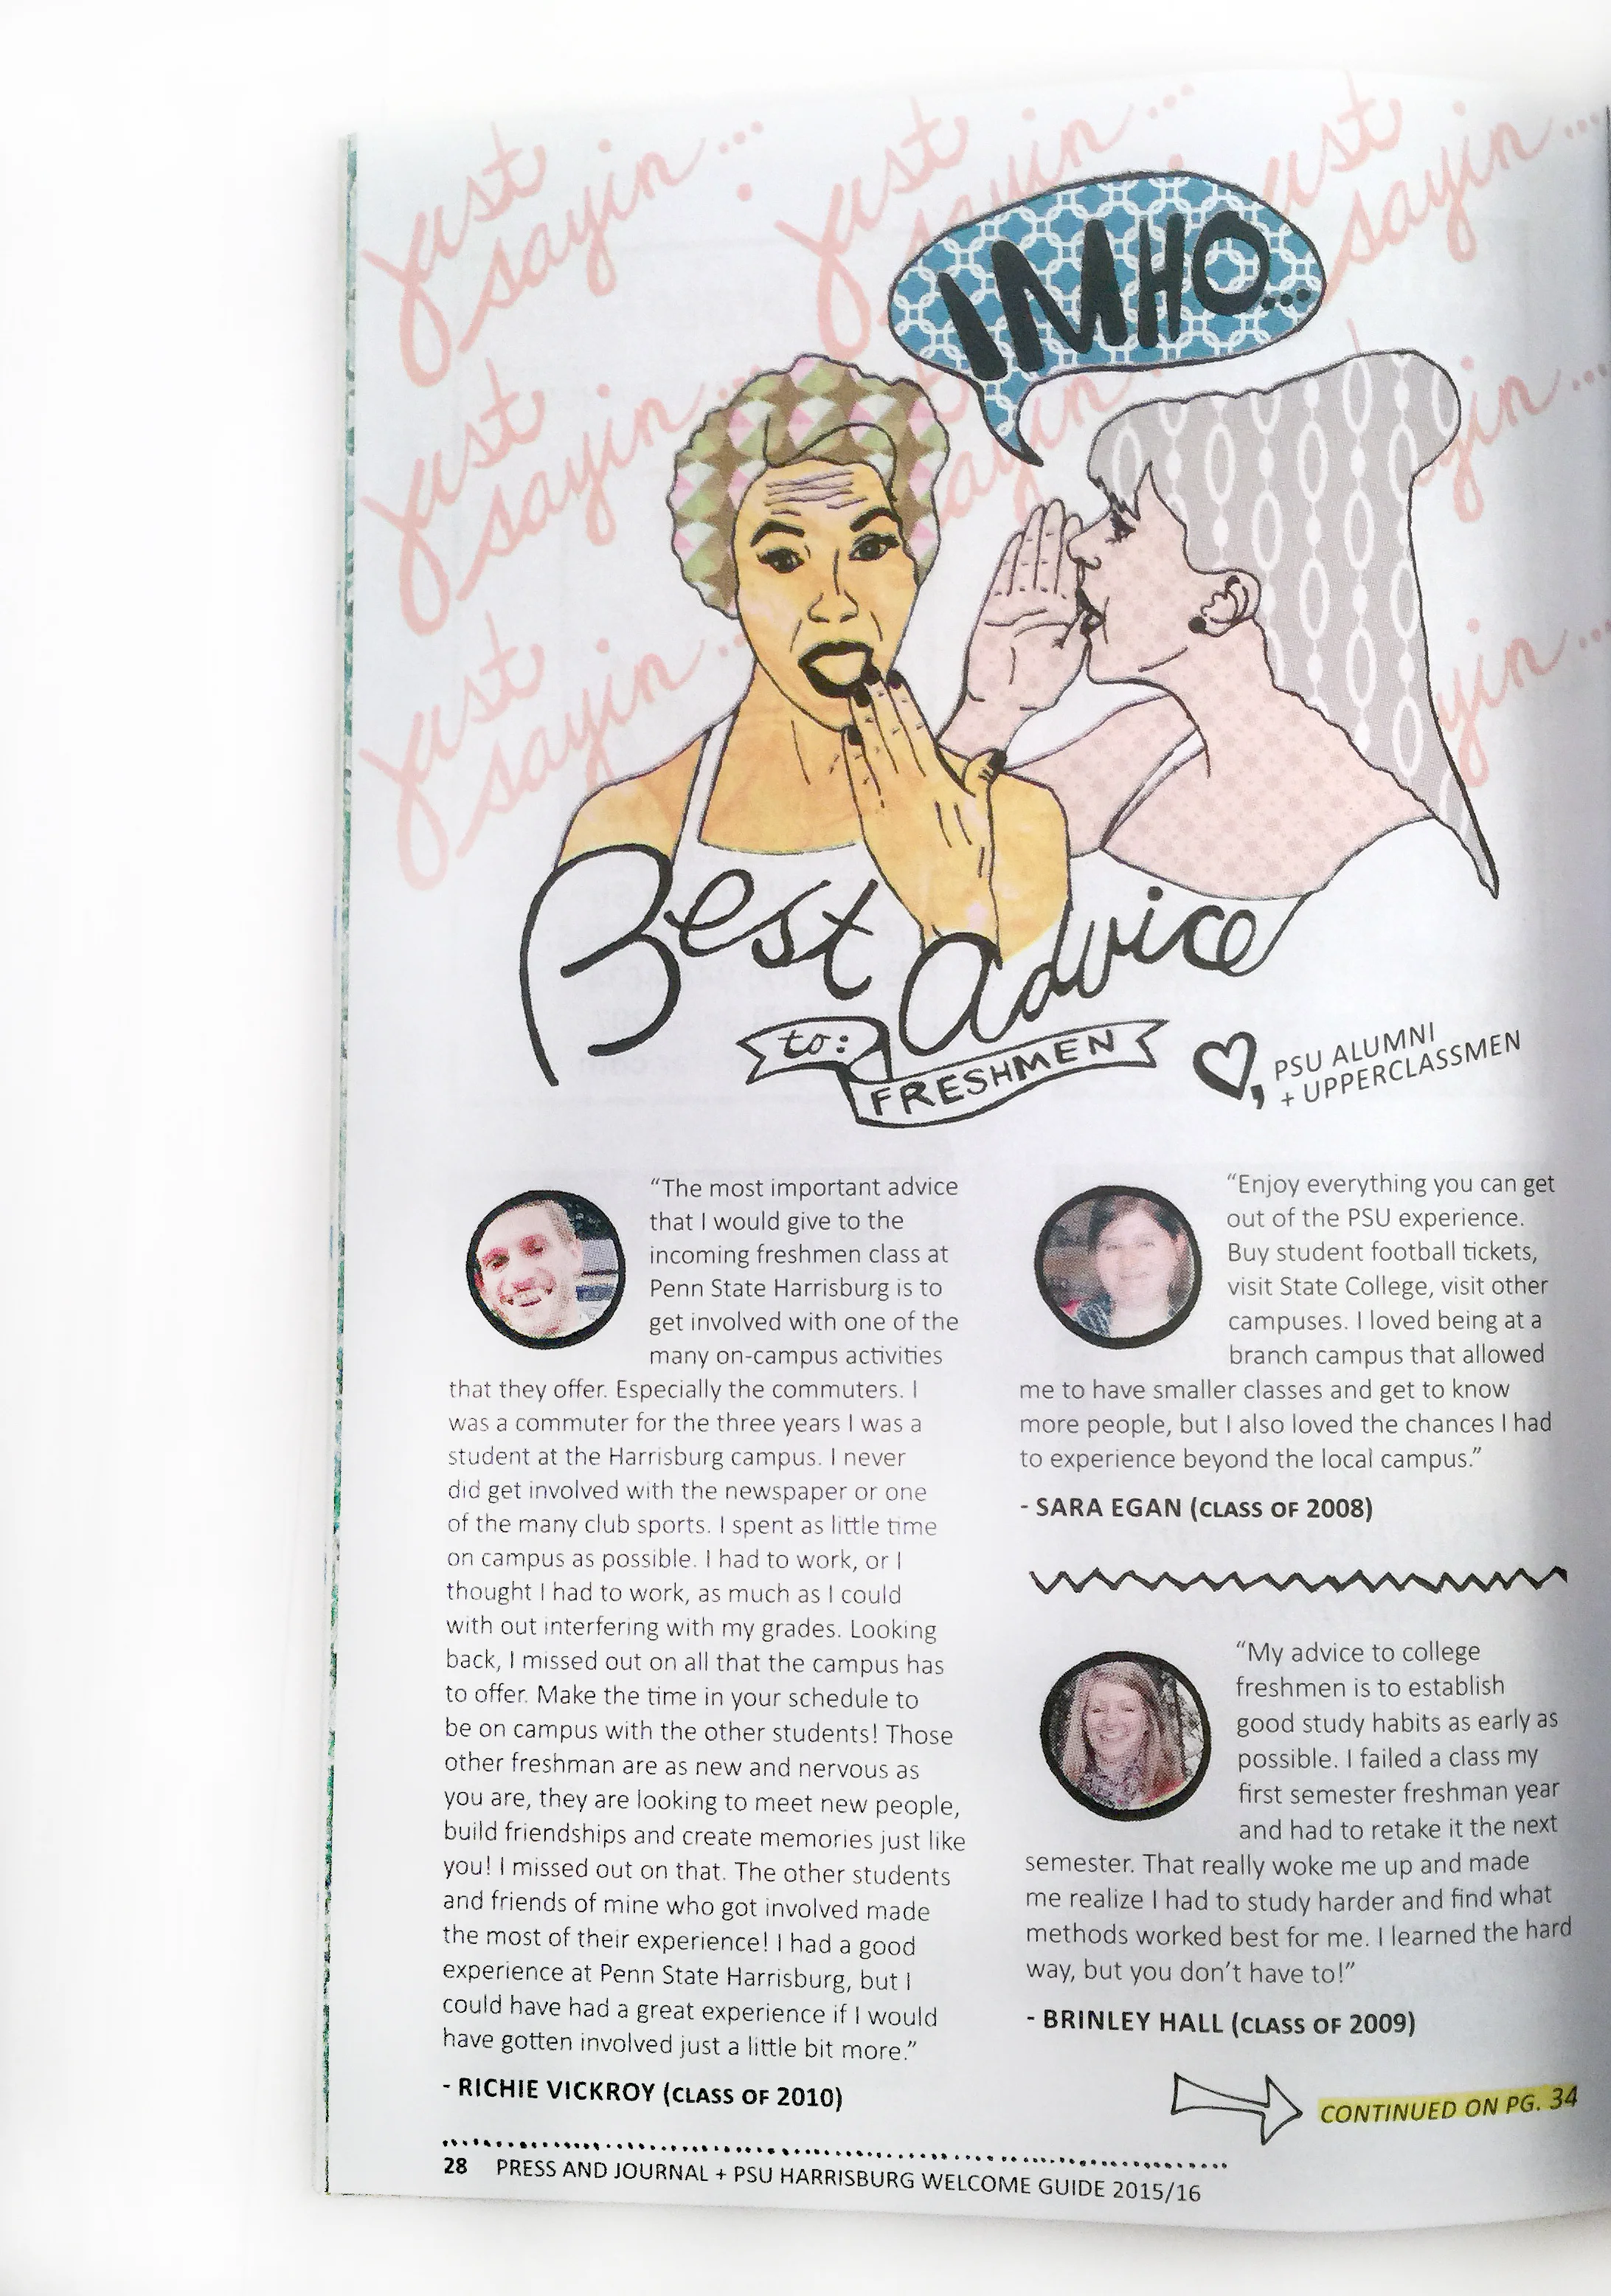 Just sayin...
Just sayin...
Just sayin...
IMHO...
Just sayin...
Just sayin...
Best Advice
to:
FRESHMEN
PSU ALUMNI
+ UPPERCLASSMEN
“The most important advice
that I would give to the
incoming freshmen class at
Penn State Harrisburg is to
get involved with one of the
many on-campus activities
that they offer. Especially the commuters. I
was a commuter for the three years I was a
student at the Harrisburg campus. I never
did get involved with the newspaper or one
of the many club sports. I spent as little time
on campus as possible. I had to work, or I
thought I had to work, as much as I could
with out interfering with my grades. Looking
back, I missed out on all that the campus has
to offer. Make the time in your schedule to
be on campus with the other students! Those
other freshman are as new and nervous as
you are, they are looking to meet new people,
build friendships and create memories just like
you! I missed out on that. The other students
and friends of mine who got involved made
the most of their experience! I had a good
experience at Penn State Harrisburg, but I
could have had a great experience if I would
have gotten involved just a little bit more.”
- RICHIE VICKROY (CLASS OF 2010)
“Enjoy everything you can get
out of the PSU experience.
Buy student football tickets,
visit State College, visit other
campuses. I loved being at a
branch campus that allowed
me to have smaller classes and get to know
more people, but I also loved the chances I had
to experience beyond the local campus.”
- SARA EGAN (CLASS OF 2008)
“My advice to college
freshmen is to establish
good study habits as early as
possible. I failed a class my
first semester freshman year
and had to retake it the next
semester. That really woke me up and made
me realize I had to study harder and find what
methods worked best for me. I learned the hard
way, but you don’t have to!”
- BRINLEY HALL (CLASS OF 2009)
CONTINUED ON PG. 34
28 PRESS AND JOURNAL + PSU HARRISBURG WELCOME GUIDE 2015/16